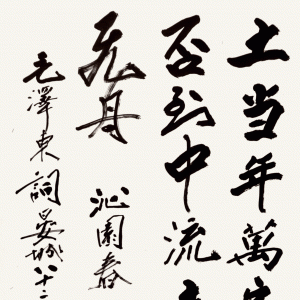 土当年萬
否到中流
飞舟 沁園春
毛澤東詞晏城八十二